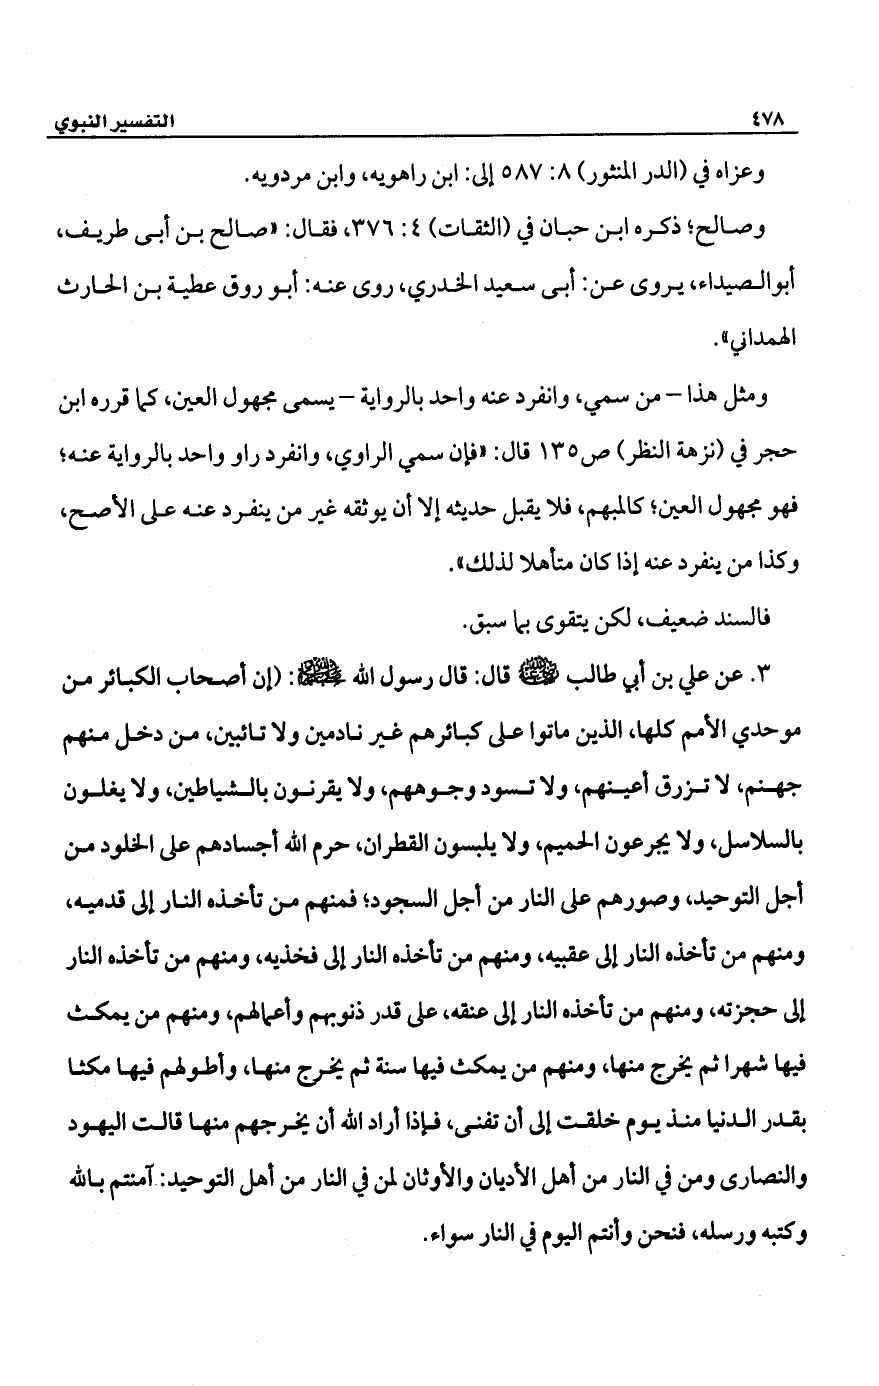 ٤٧٨ التفسير النبوي
وعزاه في (الدر المنثور) ٨: ٥٨٧ إلى: ابن راهويه، وابن مردويه.
وصالح؛ ذكره ابن حبان في (الثقات) ٤: ٣٧٦، فقال: «صالح بن أبى طريف،
أبوالصيداء، يروى عن: أبى سعيد الخدري، روى عنه: أبو روق عطية بن الحارث
الهمداني».
ومثل هذا – من سمي، وانفرد عنه واحد بالرواية – يسمى مجهول العين، كما قرره ابن
حجر في (نزهة النظر) ص١٣٥ قال: «فإن سمي الراوي، وانفرد راو واحد بالرواية عنه؛
فهو مجهول العين؛ كالمبهم، فلا يقبل حديثه إلا أن يوثقه غير من ينفرد عنه على الأصح،
وكذا من ينفرد عنه إذا كان متأهلا لذلك».
فالسند ضعيف، لكن يتقوى بما سبق.
٣. عن علي بن أبي طالب رضي الله عنه قال: قال رسول الله ﷺ: (إن أصحاب الكبائر من
موحدي الأمم كلها، الذين ماتوا على كبائرهم غير نادمين ولا تائبين، من دخل منهم
جهنم، لا تزرق أعينهم، ولا تسود وجوههم، ولا يقرنون بالشياطين، ولا يغلون
بالسلاسل، ولا يجرعون الحميم، ولا يلبسون القطران، حرم الله أجسادهم على الخلود من
أجل التوحيد، وصورهم على النار من أجل السجود؛ فمنهم من تأخذه النار إلى قدميه،
ومنهم من تأخذه النار إلى عقبيه، ومنهم من تأخذه النار إلى فخذيه، ومنهم من تأخذه النار
إلى حجزته، ومنهم من تأخذه النار إلى عنقه، على قدر ذنوبهم وأعمالهم، ومنهم من يمكث
فيها شهرا ثم يخرج منها، ومنهم من يمكث فيها سنة ثم يخرج منها، وأطولهم فيها مكثا
بقدر الدنيا منذ يوم خلقت إلى أن تفنى، فإذا أراد الله أن يخرجهم منها قالت اليهود
والنصارى ومن في النار من أهل الأديان والأوثان لمن في النار من أهل التوحيد: آمنتم بالله
وكتبه ورسله، فنحن وأنتم اليوم في النار سواء.